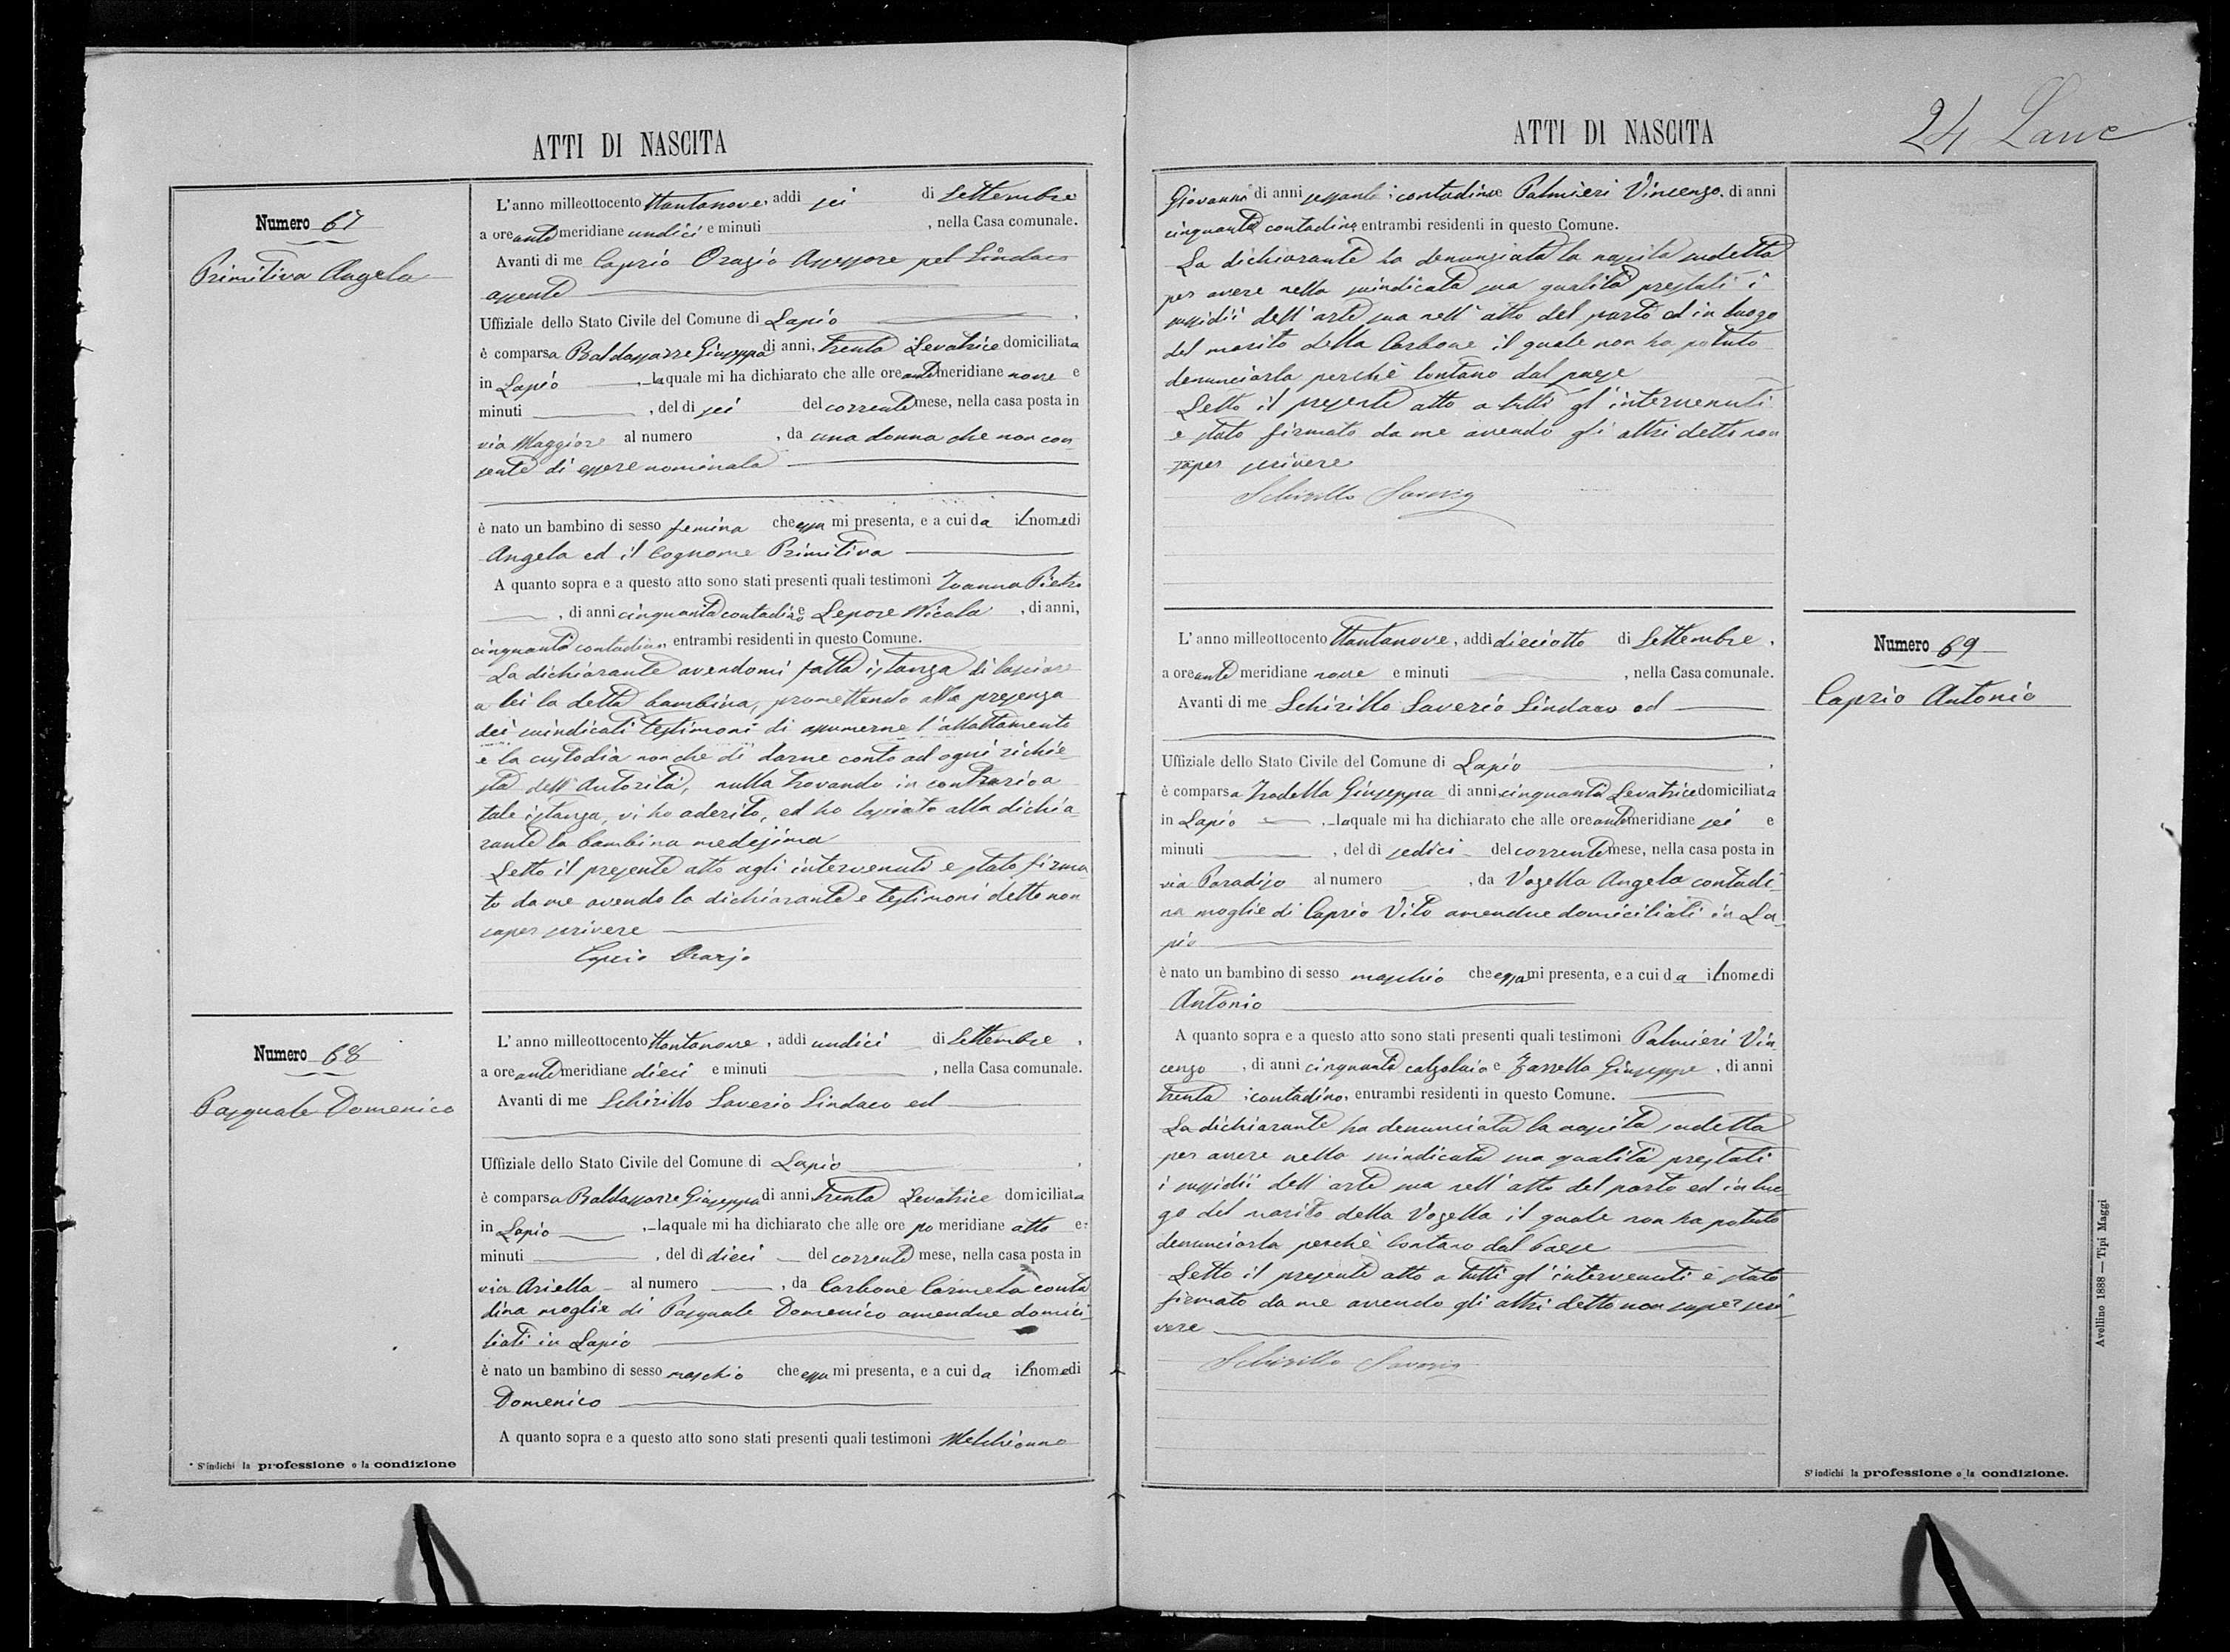 ATTI DI NASCITA
Numero 67
Primitiva Angela
L'anno milleottocento ttantanove, addi sei di Settembre
a ore antemeridiane undici e minuti , nella Casa comunale.
Avanti di me Caprio Orazio Assessore pel Sindaco
assente
Uffiziale dello Stato Civile del Comune di Lapio
è comparsa Baldassarre Giuseppa di anni, trenta Levatrice domiciliata
in Lapio , laquale mi ha dichiarato che alle ore antemeridiane nove e
minuti , del di sei del corrente mese, nella casa posta in
via Maggiore al numero , da una donna che non con-
sente di essere nominata
è nato un bambino di sesso femina che essa mi presenta, e a cui da il nome di
Angela ed il Cognome Primitiva
A quanto sopra e a questo atto sono stati presenti quali testimoni Ioanna Pietro
, di anni cinquanta contadino e Lepore Nicola , di anni,
cinquanta contadino, entrambi residenti in questo Comune.
La dichiarante avendomi fatta istanza di lasciare
a lei la detta bambina, promettendo alla presenza
dei suindicati testimoni di assumerne l'allattamento
e la custodia nonche di darne conto ad ogni richie-
sta dell'Autorità, nulla trovando in contrario a
tale istanza, vi ho aderito, ed ho lasciato alla dichia-
rante la bambina medesima
Letto il presente atto agli intervenuti e stato firma-
to da me avendo la dichiarante e testimoni detto non
saper scrivere
Caprio Orazio
Numero 68
Pasquale Domenico
L'anno milleottocento ttantanove, addi undici di Settembre,
a ore antemeridiane dieci e minuti , nella Casa comunale.
Avanti di me Schirillo Saverio Sindaco ed
Uffiziale dello Stato Civile del Comune di Lapio
è comparsa Baldassarre Giuseppa di anni trenta Levatrice domiciliata
in Lapio , laquale mi ha dichiarato che alle ore po meridiane otto e
minuti , del di dieci del corrente mese, nella casa posta in
via Ariella al numero , da Carbone Carmela conta
dina moglie di Pasquale Domenico amendue domici-
liati in Lapio
è nato un bambino di sesso maschio che essa mi presenta, e a cui da il nome di
Domenico
A quanto sopra e a questo atto sono stati presenti quali testimoni Melchionno
* S'indichi la professione o la condizione
ATTI DI NASCITA
24
Giovanni di anni sessanta contadino e Palmieri Vincenzo, di anni
cinquanta contadino entrambi residenti in questo Comune.
La dichiarante ha denunziata la nascita sudetta
per avere nella suindicata sua qualità prestati i
sussidii dell'arte sua nell'atto del parto ed in luogo
del marito della Carbone il quale non ha potuto
denunciarla perchè lontano dal paese
Letto il presente atto a tutti gl'intervenuti
e stato firmato da me avendo gli altri detto non
saper scrivere
Schirillo Saverio
L'anno milleottocento ttantanove, addi dieciotto di Settembre,
a ore antemeridiane nove e minuti , nella Casa comunale.
Avanti di me Schirillo Saverio Sindaco ed
Uffiziale dello Stato Civile del Comune di Lapio
è comparsa Trodella Giuseppa di anni cinquanta Levatrice domiciliata
in Lapio , laquale mi ha dichiarato che alle ore antemeridiane sei e
minuti , del di sedici del corrente mese, nella casa posta in
via Paradiso al numero , da Vozella Angela contadi-
na moglie di Caprio Vito amendue domiciliati in La-
pio
è nato un bambino di sesso maschio che essa mi presenta, e a cui da il nome di
Antonio
A quanto sopra e a questo atto sono stati presenti quali testimoni Palmieri Vin
cenzo , di anni cinquanta calzolaio e Zarrella Giuseppe , di anni
trenta contadino, entrambi residenti in questo Comune.
La dichiarante ha denunciata la nascita sudetta
per avere nella suindicata sua qualità prestati
i sussidii dell'arte sua nell'atto del parto ed in luo-
go del marito della Vozella il quale non ha potuto
denunciarla perchè lontano dal Paese
Letto il presente atto a tutti gl'intervenuti è stato
firmato da me avendo gli altri detto non saper scri-
vere
Schirillo Saverio
Numero 69
Caprio Antonio
S'indichi la professione o la condizione.
Avellino 1888 — Tipi Maggi